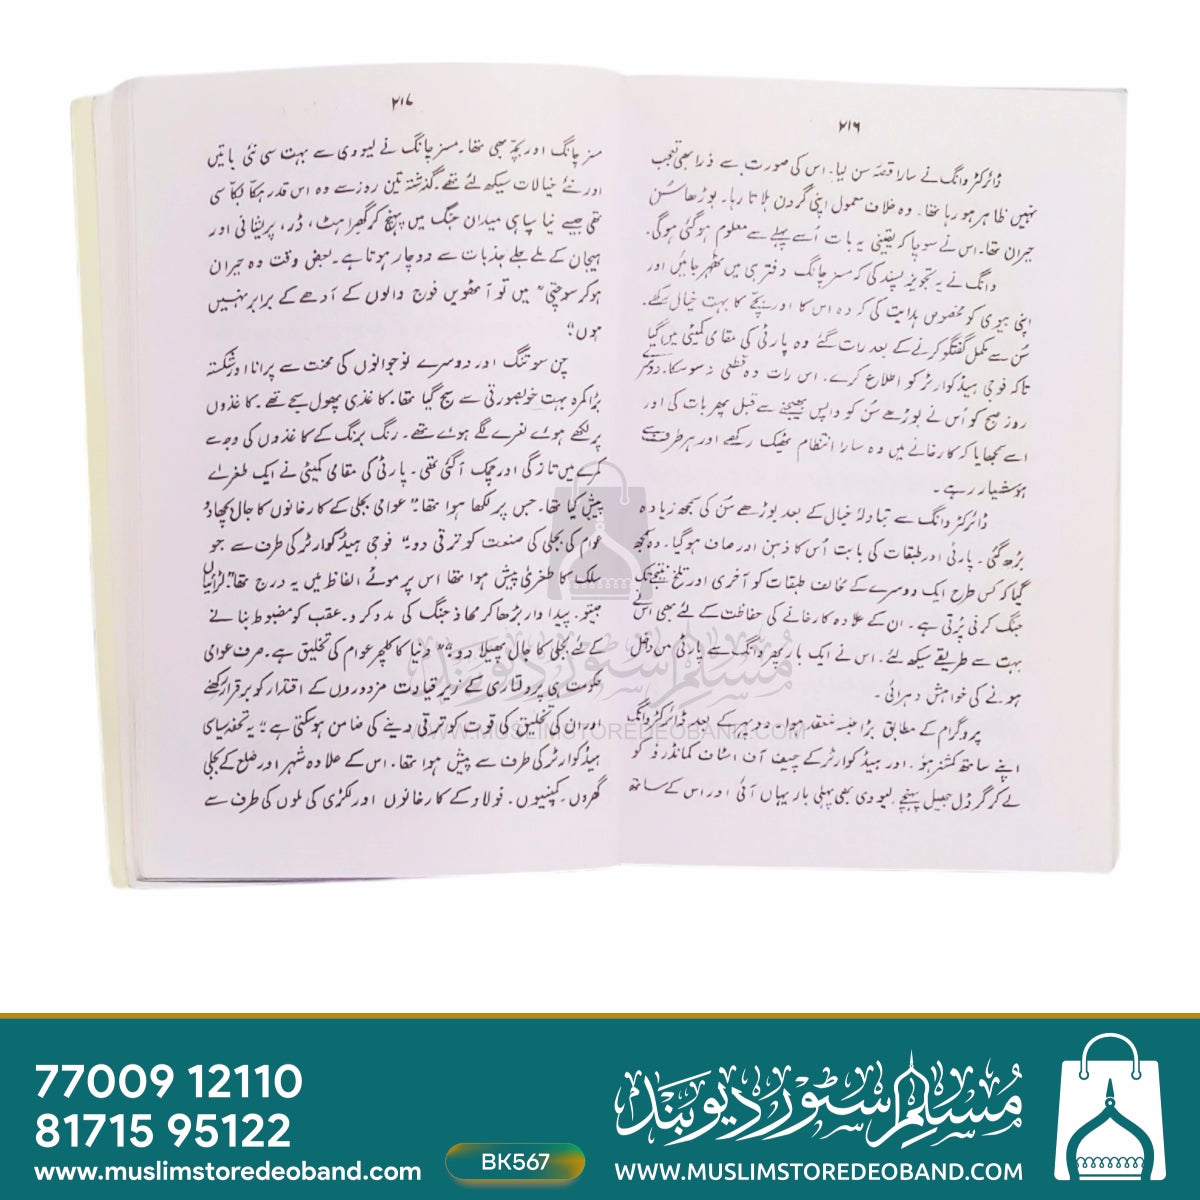 ۲۱۶
ڈائرکٹر وانگ نے سارا قصہ سن لیا۔ اس کی صورت سے ذرا بھی تعجب
نہیں ظاہر ہو رہا تھا۔ وہ خلاف معمول اپنی گردن ہلاتا رہا۔ بوڑھا سُن
حیران تھا۔ اس نے سوچا کہ یقینی یہ بات اُسے پہلے سے معلوم ہو گئی ہوگی۔
وانگ نے یہ تجویز پسند کی کہ مسز چانگ دفتر ہی میں ٹھہر جائیں اور
اپنی بیوی کو مخصوص ہدایت کی کہ وہ اس کا اور بچّے کا بہت خیال رکھے۔
سُن سے مکمل گفتگو کرنے کے بعد رات گئے وہ پارٹی کی مقامی کمیٹی میں گیا
تاکہ فوجی ہیڈ کوارٹر کو اطلاع کرے۔ اس رات وہ قطعی نہ سو سکا۔ دوسرے
روز صبح کو اُس نے بوڑھے سُن کو واپس بھیجنے سے قبل پھر بات کی اور
اسے سمجھایا کہ کارخانے میں وہ سارا انتظام ٹھیک رکھے اور ہر طرف سے
ہوشیار رہے۔
ڈائرکٹر وانگ سے تبادلۂ خیال کے بعد بوڑھے سُن کی سمجھ زیادہ
بڑھ گئی۔ پارٹی اور طبقات کی بابت اُس کا ذہن اور صاف ہو گیا۔ وہ سمجھ
گیا کہ کس طرح ایک دوسرے کے مخالف طبقات کو آخری اور تلخ نتیجے تک
جنگ کرنی پڑتی ہے۔ ان کے علاوہ کارخانے کی حفاظت کے لئے بھی اس نے
بہت سے طریقے سیکھ لئے۔ اس نے ایک بار پھر وانگ سے پارٹی میں داخل
ہونے کی خواہش دہرائی۔
پروگرام کے مطابق بڑا جلسہ منعقد ہوا۔ دوپہر کے بعد ڈائرکٹر وانگ
اپنے ساتھ کمشنر ہؤ۔ اور ہیڈ کوارٹر کے چیف آف اسٹاف کمانڈر ڈو کو
لے کر گر ڈل جھیل پہنچے۔ لیو دی بھی پہلی بار یہاں آئی اور اس کے ساتھ
۲۱۷
مسز چانگ اور بچّہ بھی تھا۔ مسز چانگ نے لیو دی سے بہت سی نئی باتیں
اور نئے خیالات سیکھ لئے تھے۔ گذشتہ تین روز سے وہ اس قدر ہکّا بکّا سی
تھی جیسے نیا سپاہی میدان جنگ میں پہنچ کر گھبراہٹ، ڈر، پریشانی اور
ہیجان کے ملے جلے جذبات سے دوچار ہوتا ہے۔ بعض وقت وہ حیران
ہو کر سوچتی " میں تو آٹھویں فوج والوں کے آدھے کے برابر نہیں
ہوں"
چن سوتنگ اور دوسرے نوجوانوں کی محنت سے پرانا اور شکستہ
بڑا کمرہ بہت خوبصورتی سے سج گیا تھا۔ کاغذی پھول سجے تھے۔ کاغذوں
پر لکھے ہوئے نعرے لگے ہوئے تھے۔ رنگ برنگ کے کاغذوں کی وجہ سے
کمرے میں تازگی اور چمک آگئی تھی۔ پارٹی کی مقامی کمیٹی نے ایک طغرائے
پیش کیا تھا۔ جس پر لکھا ہوا تھا" عوامی بجلی کے کارخانوں کا جال بچھا دو
عوام کی بجلی کی صنعت کو ترقی دو" فوجی ہیڈ کوارٹر کی طرف سے جو
سلک کا طغریٰ پیش ہوا تھا اس پر موٹے الفاظ میں یہ درج تھا "لڑائیاں
جیتو۔ پیداوار بڑھا کر محاذ جنگ کی مدد کرو۔ عقب کو مضبوط بنانے
کے لئے بجلی کا جال پھیلا دو" "دنیا کا کلچر عوام کی تخلیق ہے۔ صرف عوامی
حکومت ہی پرولتاری کے زیر قیادت مزدوروں کے اقتدار کو برقرار رکھنے
اور ان کی تخلیق کی قوت کو ترقی دینے کی ضامن ہو سکتی ہے" یہ تحفہ سیاسی
ہیڈ کوارٹر کی طرف سے پیش ہوا تھا۔ اس کے علاوہ شہر اور ضلع کے بجلی
گھروں۔ کمپنیوں۔ فولاد کے کارخانوں اور لکڑی کی ملوں کی طرف سے
مُسلم سٹور دیوبند
WWW.MUSLIMSTOREDEOBAND.COM
77009 12110
81715 95122
www.muslimstoredeoband.com
BK567
مُسلم سٹور دیوبند
WWW.MUSLIMSTOREDEOBAND.COM